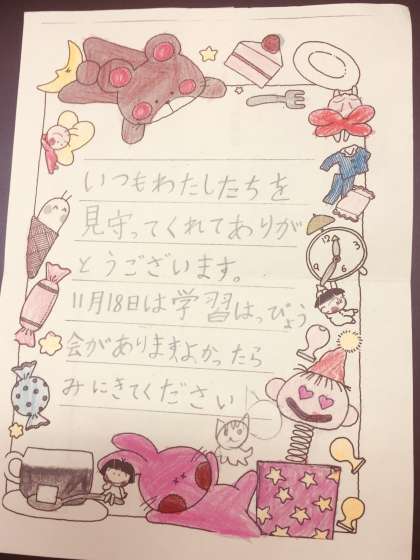 いつもわたしたちを
見守ってくれてありが
とうございます。
11月18日は学習はっぴょう
会がありますよかったら
みにきてください